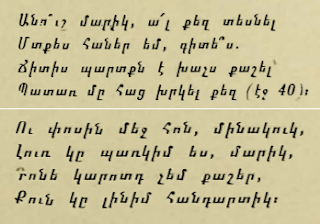 Անո՜ւշ մարիկ, ա՛լ քեզ տեսնել
Մտքես հաներ եմ, գիտե՞ս.
Ճիտիս պարտքն է խաչս քաշել՝
Պատառ մը հաց խրկել քեզ (էջ 40)։
Ու փոսին մեջ հոն, մինակուկ,
Լուռ կը պառկիմ ես, մարիկ,
Րոնե կարոտդ չեմ քաշեր,
Քուն կը լինիմ հանդարտիկ։